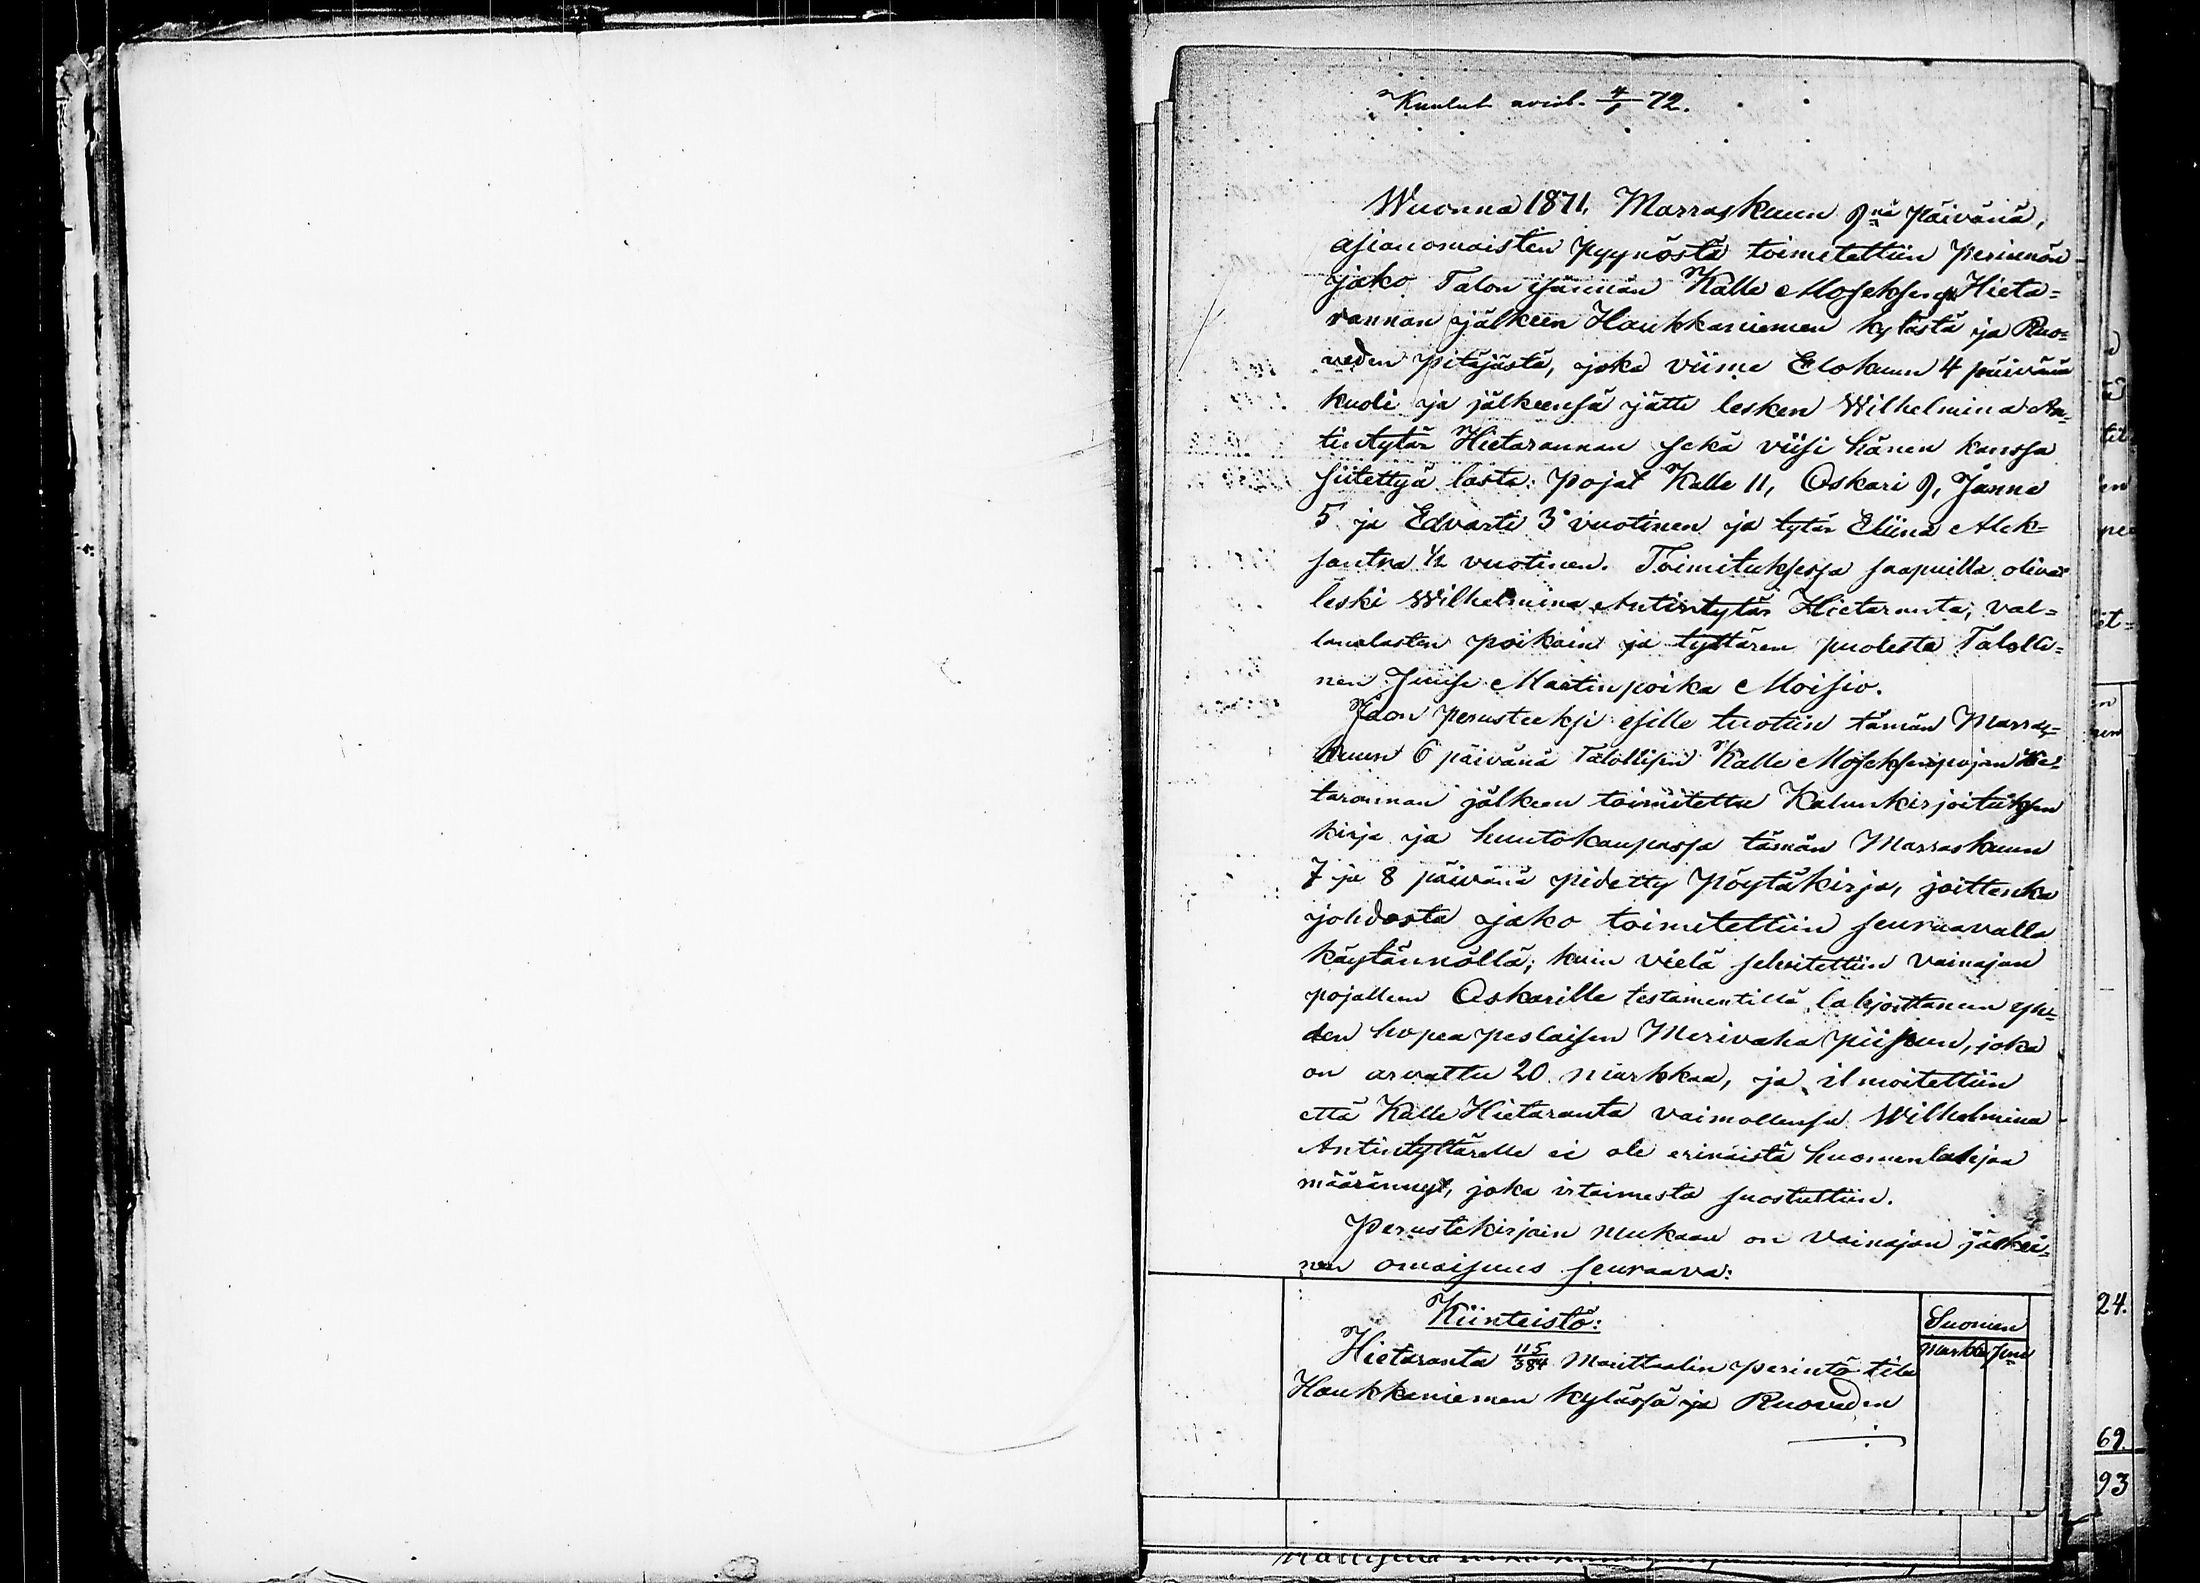 Kuulut avisl. 4/1 72.
Wuonna 1871, Marraskuun 9nä päivänä,
asianomaisten pyynöstä toimitettiin perinnön
jako Talon isännän Kalle Moseksenp. Hieta=
rannan jälkeen Haukkaniemen kylästä ja Ruo=
veden pitäjästä, joka viime Elokuun 4 päivänä
kuoli ja jälkeensä jätti lesken Wilhelmina An=
tintytär Hietarannan sekä viisi hänen kanssa
siitettyä lasta: pojat Kalle 11, Oskari 9, Janne
5 ja Edvarti 3 vuotinen ja tytär Eliina Alek=
santra ½ vuotinen. Toimituksessa saapuilla olivat
leski Wilhelmina Antintytär Hietaranta, val=
lanalasten poikain ja tyttären puolesta Talolli=
nen Juuse Martinpoika Moisio.
Jaon perusteeksi esille tuotiin tämän Marras=
kuun 6 päivänä Talollisen Kalle Moseksenpojan Hie=
tarannan jälkeen toimitettu Kalunkirjoituksen
kirja ja huutokaupassa tämän Marraskuun
7 ja 8 päivänä pidetty pöytäkirja, joittenka
johdosta jako toimitettiin seuraavalla
käytännöllä; kuin vielä selvitettiin vainajan
pojallen Oskarille testamentillä lahjoittaneen yh=
den hopea peslaisen Merivaha piipun, joka
on arvattu 20 markkaa, ja ilmoitettiin
että Kalle Hietaranta vaimollensa Wilhelmina
Antintyttärelle ei ole erinäistä huomenlahjaa
määrännyt, joka irtaimesta suostuttiin.
Perustekirjain mukaan on vainajan jälkei=
nen omaisuus seuraava:
Kiinteistö:
Suomen
Markka pnä
Hietaranta 115/384 Manttaalin perintö tila
Haukkaniemen kylässä ja Ruoveden
24.
69.
93